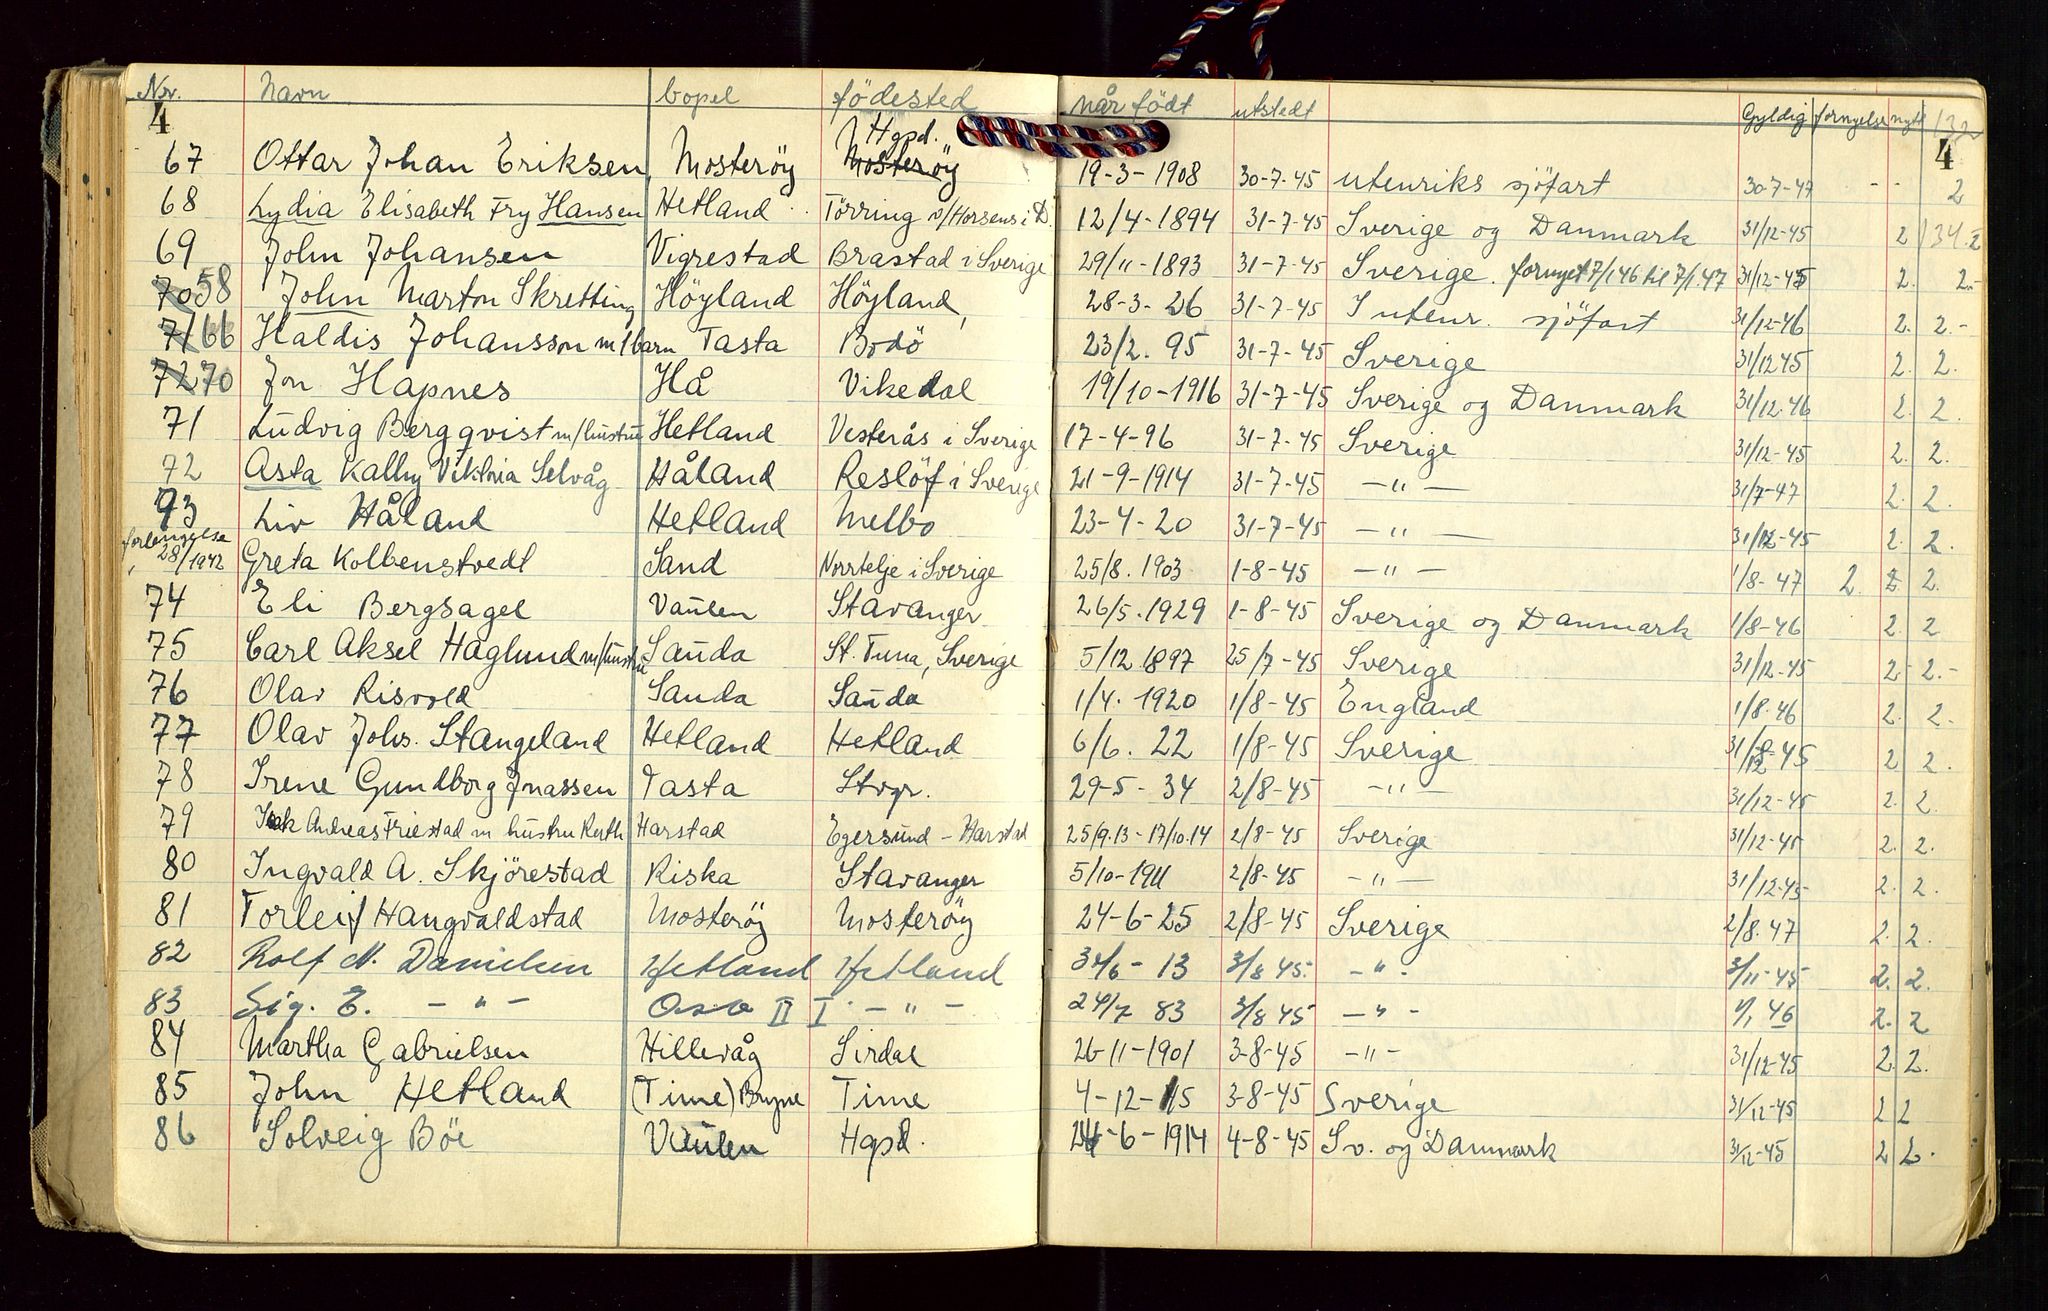 Nr. Navn bopel födested når födt utstedt Gyldig fornyelse nytt 132
4 4
Hgsd.
67 Ottar Johan Eriksen, Mosteröy Mosteröy 19-3-1908 30-7-45 utenriks sjöfart 30-7-47 - - 2
68 Lydia Elisabeth Fry Hansen Hetland Törring v/Horsens i D. 12/4-1894 31-7-45 Sverige og Danmark 31/12-45 2 134.2
69 John Johansen Vigrestad Brastad i Sverige 29/11-1893 31-7-45 Sverige. fornyet 7/1 46 til 7/1.47 31/12-45 2. 2.-
70 58 John Marton Skretting Höyland Höyland, 28-3-26 31-7-45 I utenr. sjöfart 31/12-46 2. 2.-
71 66 Haldis Johansson m/barn Tasta Bodö 23/2. 95 31-7-45 Sverige 31/12 45 2. 2.
72 70 Jon Hapnes Hå Vikedal 19/10-1916 31-7-45 Sverige og Danmark 31/12.46 2. 2.
71 Ludvig Bergqvist m/hustru Hetland Vesterås i Sverige 17-4-96 31-7-45 Sverige 31/12-45 2. 2.
72 Asta Kathy Viktoria Selvåg Håland Reslöf i Sverige 21-9-1914 31-7-45 -"- 31/7-47 2. 2.
73 Liv Håland Hetland Melbo 23-4-20 31-7-45 -"- 31/12-45 2. 2.
forlengelse 28/1942 Greta Kolbenstvedt Sand Norrtelje i Sverige 25/8.1903 1-8-45 -"- 1/8-47 2. 2 2.
74 Eli Bergsagel Vaulen Stavanger 26/5.1929 1-8-45 Sverige og Danmark 1/8-46 2. 2
75 Carl Aksel Haglund m/hustru Sauda St. Tuna, Sverige 5/12 1897 25/7-45 Sverige 31/12-45 2 2.-
76 Olav Risvold Sauda Sauda 1/4. 1920 1/8-45 England 1/8.46 2. 2.
77 Olav Johs. Stangeland Hetland Hetland 6/6. 22 1/8-45 Sverige 31/12-45 2 2.
78 Irene Gundborg Jnassen Tasta Stvgr. 29-5-34 2/8-45 -"- 31/12-45 2. 2.
79 Andreas Friestad m hustru Ruth Harstad Egersund - Harstad 25/9.13-17/10.14 2/8-45 Sverige 31/12-45 2. 2.
80 Ingvald A. Skjörestad Riska Stavanger 5/10-1911 2/8-45 -"- 31/12-45 2. 2.
81 Torleif Hangvaldstad Mosteröy Mosteröy 24-6-25 2/8-45 Sverige 2/8.47 2. 2.
82 Rolf N. Danielsen Hetland Hetland /6-13 3/8 45. -"- 3/11-45 2. 2.
83 Sig. E. -"- II I -"- 24/7 83 3/8 45 -"- 1/1 46 2. 2
84 Martha Gabrielsen Hillevåg Sirdal 26-11-1901 3-8-45 -"- 31/12-45 2. 2.
85 John Hetland (Time) Bryne Time 4-12-15 3-8-45 Sverige 31/12-45 2 2
86 Solveig Böe Vaulen Hgsd. 24-6-1914 4-8-45 Sv. og Danmark 31/12-45 2 2.